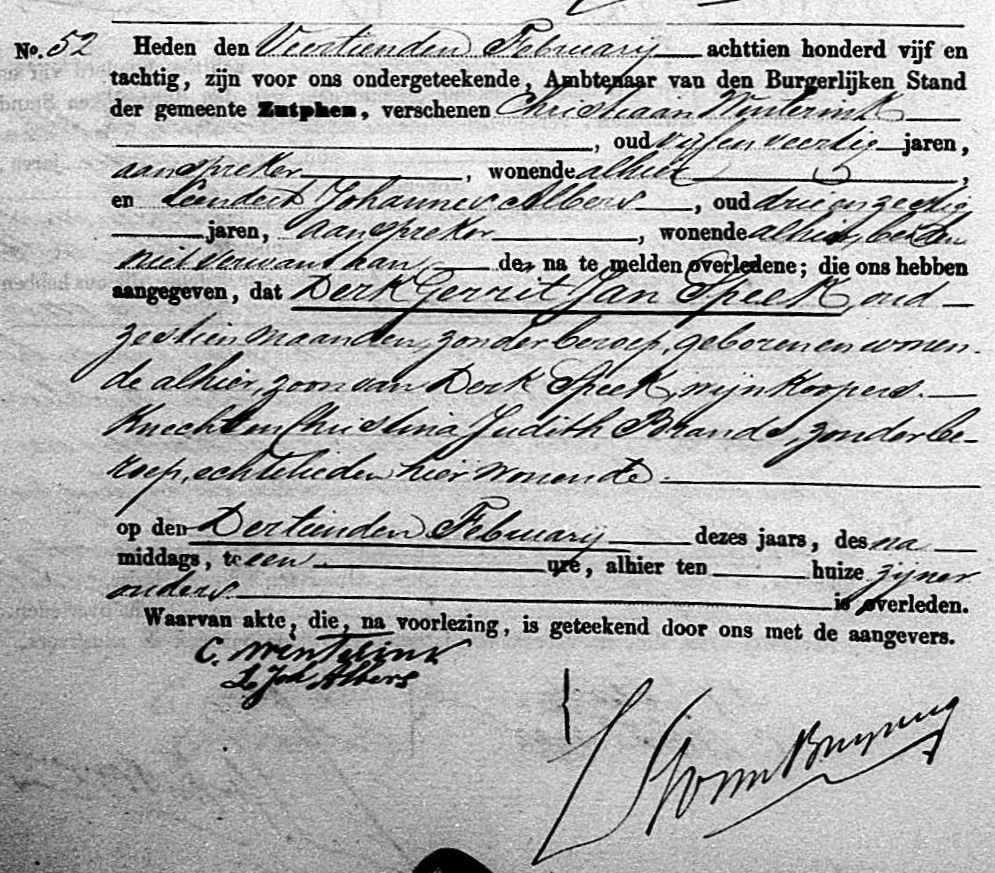 No. 52 Heden den Veertienden Februarij achttien honderd vijf en
tachtig, zijn voor ons ondergeteekende, Ambtenaar van den Burgerlijken Stand
der gemeente Zutphen, verschenen Christiaan Winterink
, oud vijf en veertig jaren,
aanspreker, wonende alhier,
en Leendert Johannes Albers, oud drie en zestig
jaren, aanspreker, wonende alhier, beiden
niet verwant aan de na te melden overledene; die ons hebben
aangegeven, dat Derk Gerrit Jan Speek, oud
zestien maanden, zonder beroep, geboren en wonen-
de alhier, zoon van Derk Speek, wijnkoopers-
knecht en Christina Judith Brands, zonder be-
roep, echtelieden hier wonende.
op den Dertienden Februarij dezes jaars, des na
middags, te een ure, alhier ten huize zijner
ouders. is overleden.
Waarvan akte, die, na voorlezing, is geteekend door ons met de aangevers.
C. Winterink
L. Joh Albers